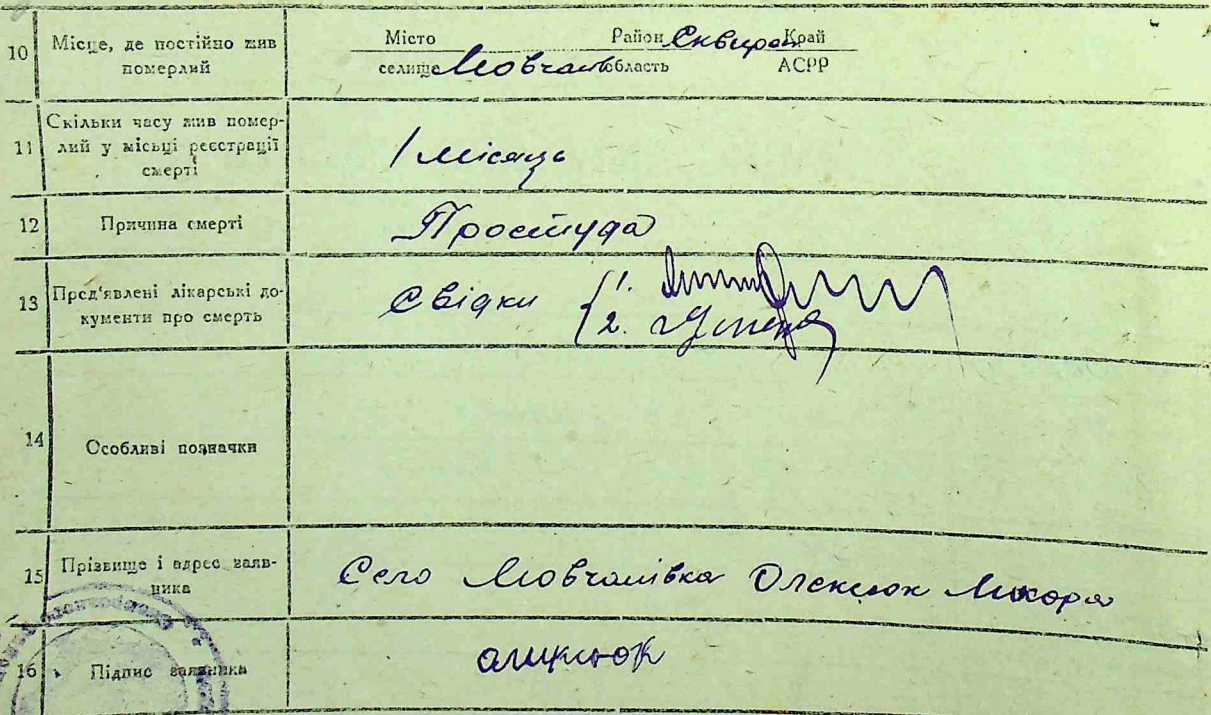 10 Місце, де постійно жив
померлий
Місто Район Сквира Край
селище Мовчан область АСРР
11 Скільки часу жив помер-
лий у місці реєстрації
смерті
1 місяць
12 Причина смерті
Простуда
13 Пред'явлені лікарські до-
кументи про смерть
Свідки 1.
2.
14 Особливі позначки
15 Прізвище і адрес заяв-
ника
Село Мовчанівка Олексюк
16 Підпис заявника